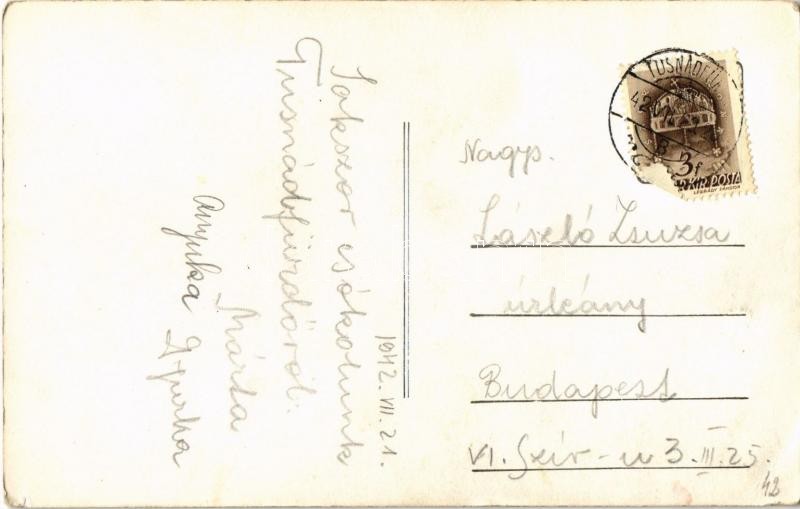 Sokszor csókolunk
Tusnádfürdőről.
Márta
Anyuka Apuka
1942. VII. 21.
TUSNÁDFÜ
42. VII
3f
KIR. POSTA
LÉGRÁDY SÁNDOR
Nagys.
László Zsuzsa
úrleány
Budapest
VI. Szív-u 3. III. 25.
42